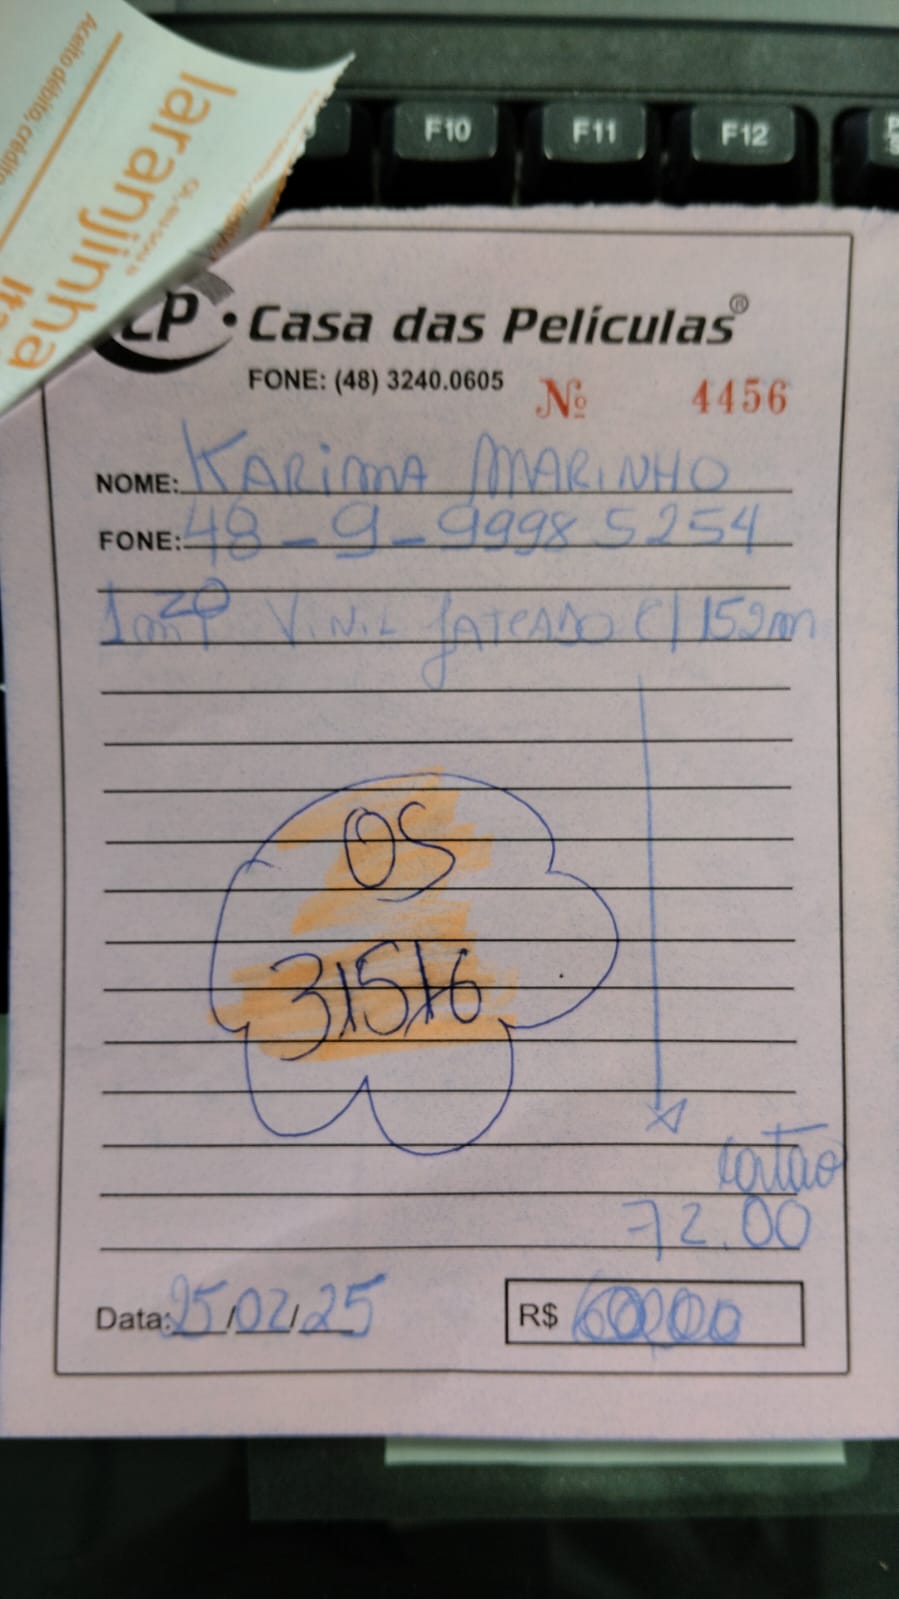 Aceito débito, crédito
laranjinha
Ita
F10
F11
F12
CP • Casa das Películas®
FONE: (48) 3240.0605
Nº 4456
NOME: KARINA MARINHO
FONE: 48-9-9998 5254
1m20 VINIL JATEADO C/ 152m
OS
31516
cartão
72.00
Data: 25/02/25
R$ 60,00